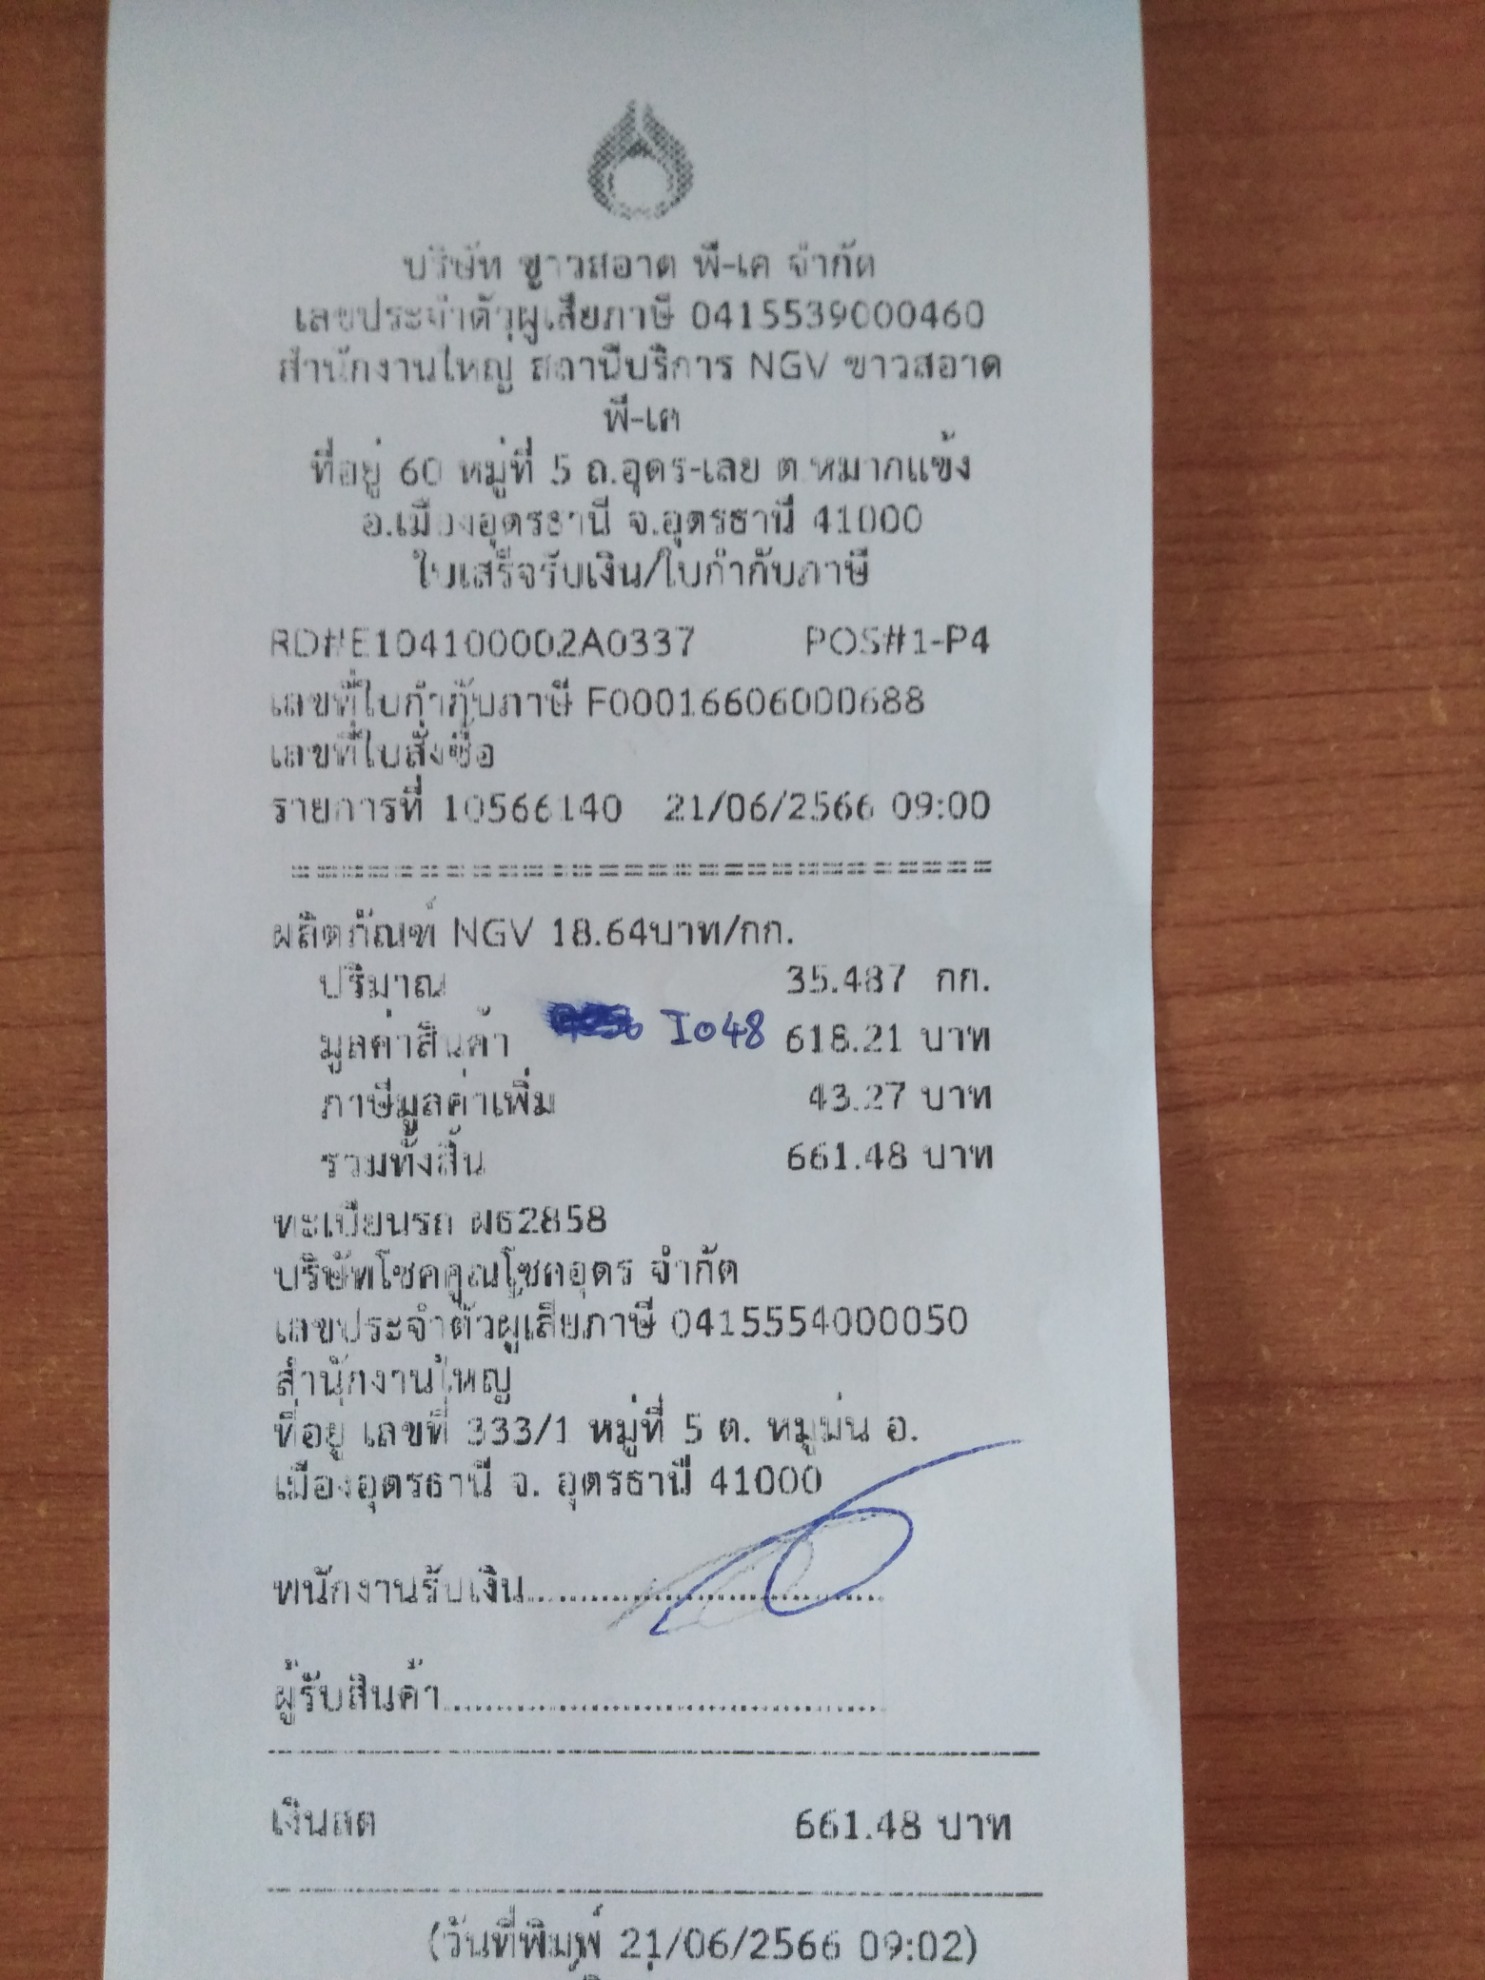 บริษัท ขาวสอาด พี-เค จำกัด
เลขประจำตัวผู้เสียภาษี 0415539000460
สำนักงานใหญ่ สถานีบริการ NGV ขาวสอาด
พี-เค
ที่อยู่ 60 หมู่ที่ 5 ถ.อุดร-เลย ต.หมากแข้ง
อ.เมืองอุดรธานี จ.อุดรธานี 41000
ใบเสร็จรับเงิน/ใบกำกับภาษี
RD#E104100002A0337 POS#1-P4
เลขที่ใบกำกับภาษี F00016606000688
เลขที่ใบสั่งซื้อ
รายการที่ 10566140 21/06/2566 09:00
===========================
ผลิตภัณฑ์ NGV 18.64บาท/กก.
ปริมาณ 35.487 กก.
มูลค่าสินค้า I048 618.21 บาท
ภาษีมูลค่าเพิ่ม 43.27 บาท
รวมทั้งสิ้น 661.48 บาท
ทะเบียนรถ ผธ2858
บริษัทโชคคูณโชคอุดร จำกัด
เลขประจำตัวผู้เสียภาษี 0415554000050
สำนักงานใหญ่
ที่อยู่ เลขที่ 333/1 หมู่ที่ 5 ต. หมูม่น อ.
เมืองอุดรธานี จ. อุดรธานี 41000
พนักงานรับเงิน........................................
ผู้รับสินค้า................................................
เงินสด 661.48 บาท
(วันที่พิมพ์ 21/06/2566 09:02)